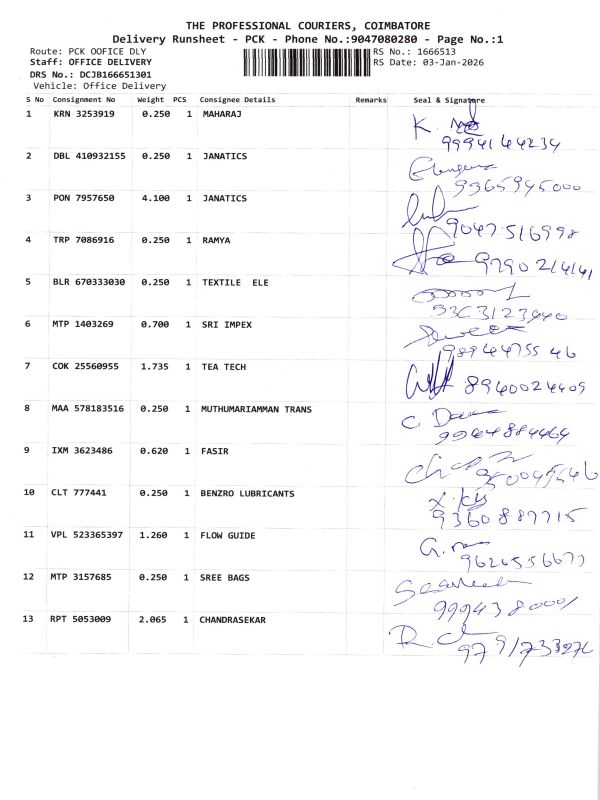 THE PROFESSIONAL COURIERS, COIMBATORE
Delivery Runsheet - PCK - Phone No.:9047080280 - Page No.:1
Route: PCK OOFICE DLY RS No.: 1666513
Staff: OFFICE DELIVERY RS Date: 03-Jan-2026
DRS No.: DCJB166651301
Vehicle: Office Delivery
S No Consignment No Weight PCS Consignee Details Remarks Seal & Signature
1 KRN 3253919 0.250 1 MAHARAJ K.
9994144234
2 DBL 410932155 0.250 1 JANATICS
9365945000
3 PON 7957650 4.100 1 JANATICS
9047516998
4 TRP 7086916 0.250 1 RAMYA
9790214141
5 BLR 670333030 0.250 1 TEXTILE ELE
6 MTP 1403269 0.700 1 SRI IMPEX
9894475546
7 COK 25560955 1.735 1 TEA TECH
8940024409
8 MAA 578183516 0.250 1 MUTHUMARIAMMAN TRANS C.
9944884464
9 IXM 3623486 0.620 1 FASIR
10 CLT 777441 0.250 1 BENZRO LUBRICANTS
9360887715
11 VPL 523365397 1.260 1 FLOW GUIDE G.
9626556677
12 MTP 3157685 0.250 1 SREE BAGS
9994380001
13 RPT 5053009 2.065 1 CHANDRASEKAR R
9791733276